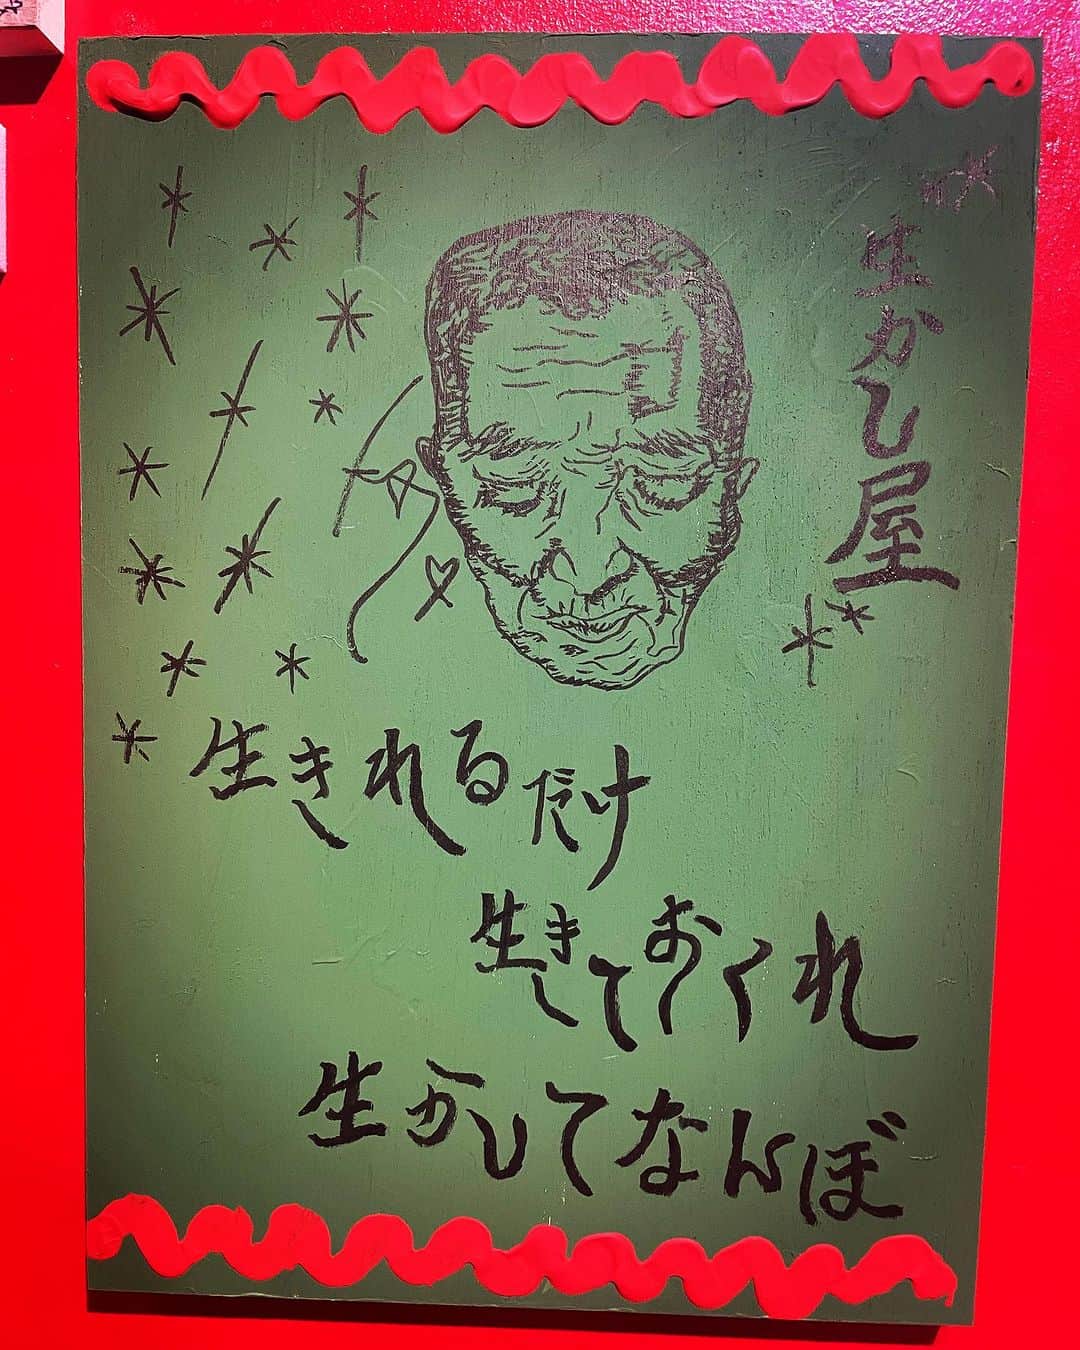 生かし屋
生きれるだけ
生きておくれ
生かしてなんぼ